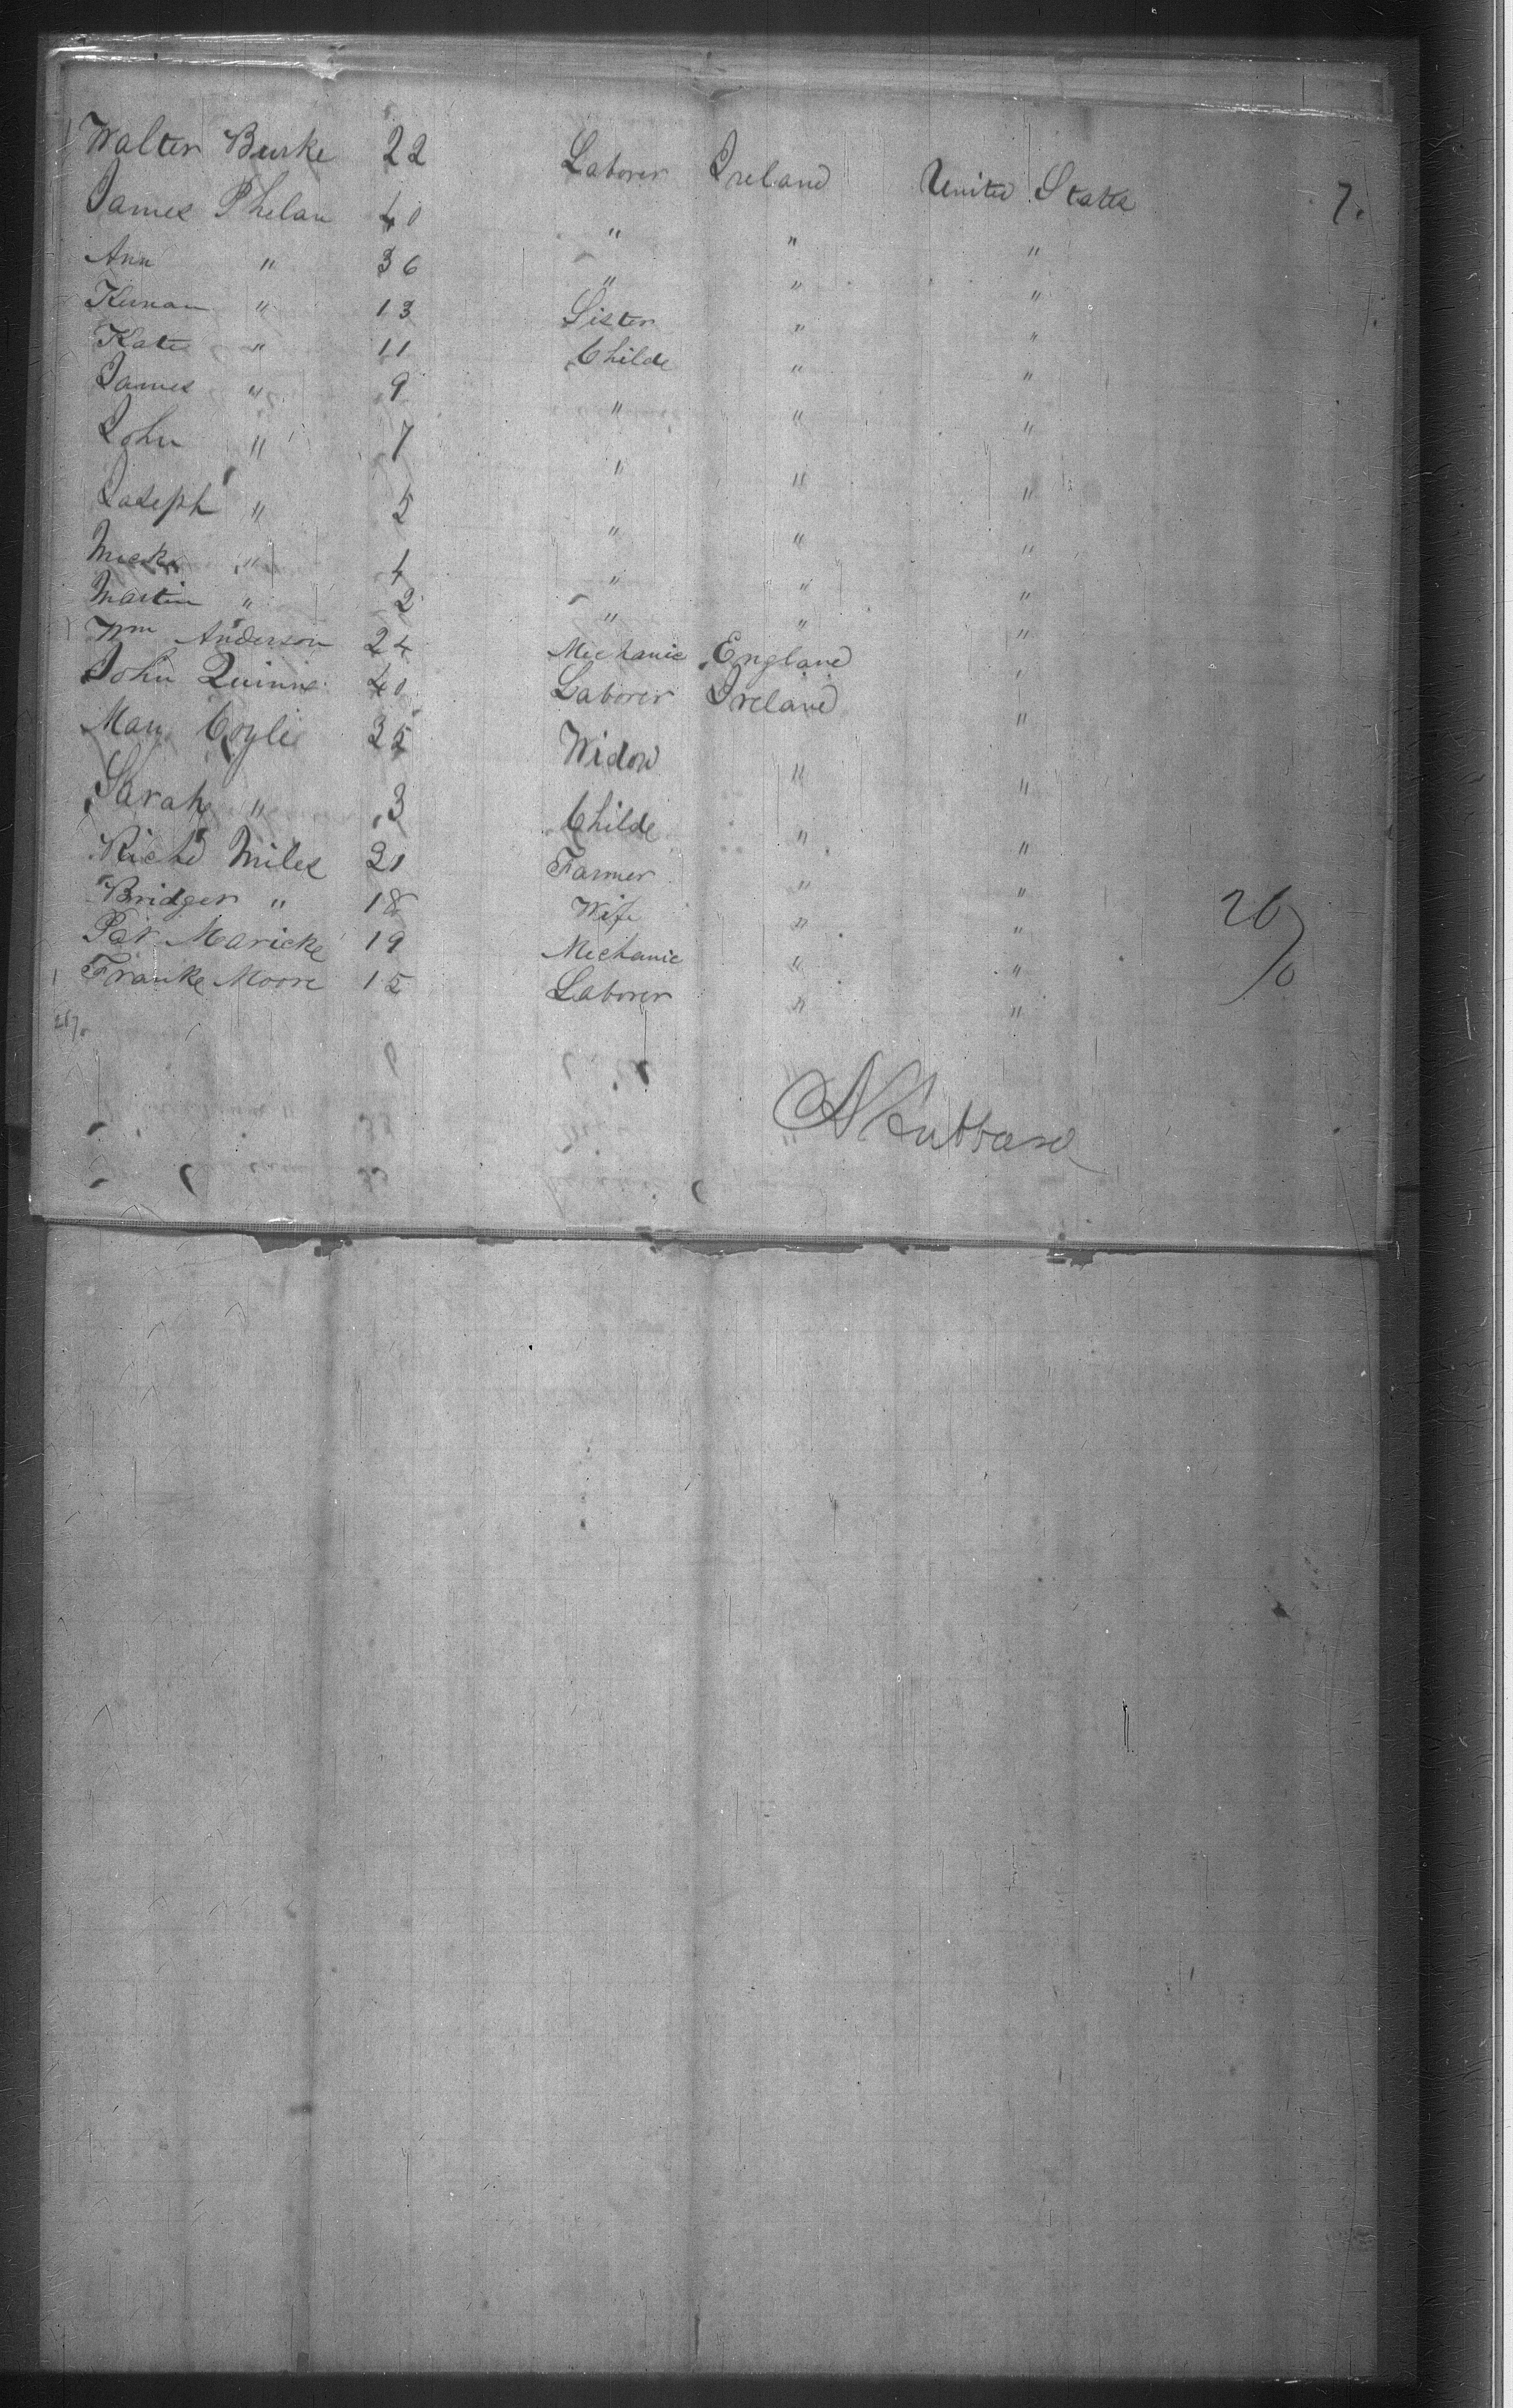 Walter Burke 22 Laborer Ireland United States 7.
James Phelan 40 " " "
Ann " 36 " " "
Kernan " 13 Sister " "
Kate " 11 Childe " "
James " 9 " " "
John " 7 " " "
Joseph " 5 " " "
" 4 " " "
Martin " 2 " " "
Wm Anderson 24 Mechanic England "
John Quinn 40 Laborer Ireland "
Mary Coyle 35 Widow " "
Sarah " 3 Childe " "
Richd Miles 21 Farmer " "
Bridger " 18 Wife " "
Pat Maricke 19 Mechanic " "
Franke Moore 15 Laborer " "